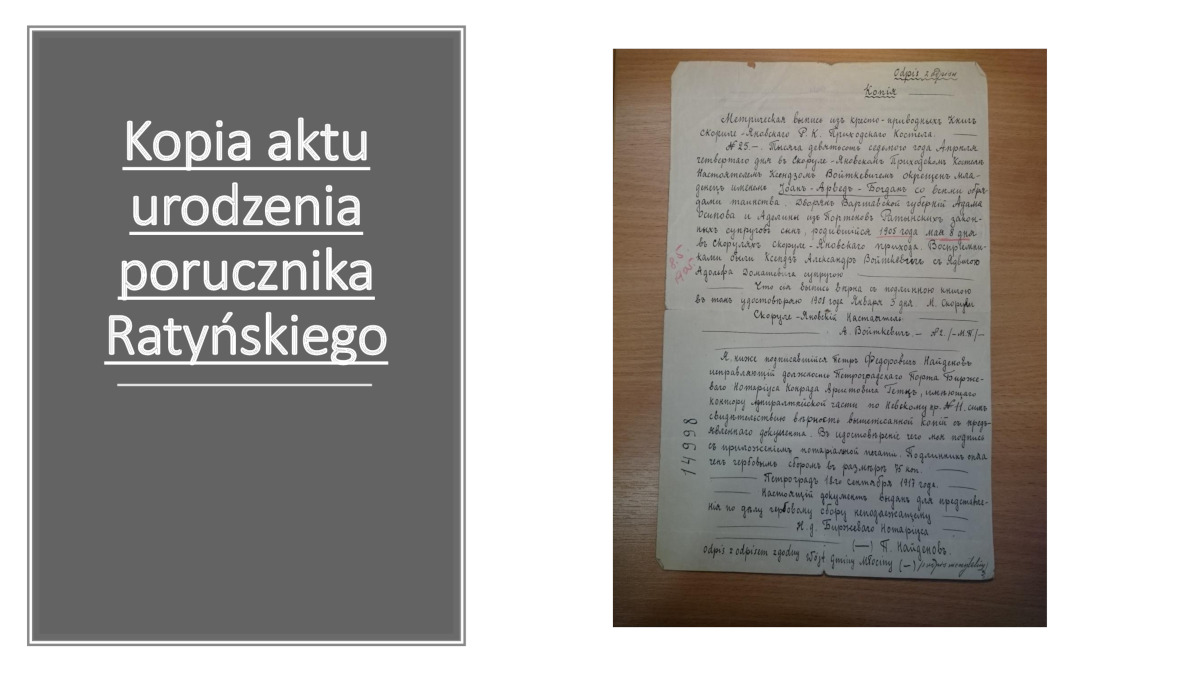 Kopia aktu
urodzenia
porucznika
Ratyńskiego
Odpis z
Копія
Метрическая выпись изъ кресто-приводныхъ Книгъ
Скоруле-Яновскаго Р. К. Приходскаго Костела.
№ 25.-. Тысяча девятьсотъ седьмого года Апрѣля
четвертаго дня въ Скоруле-Яновскомъ Приходскомъ Костелѣ
Настоятелемъ Ксендзомъ Войткевичемъ окрещенъ мла-
денецъ именемъ Іоанъ-Арведъ-Богданъ со всѣми обря-
дами таинства. Дворянъ Варшавской губерніи Адама
Осипова и Аделины изъ Ратынскихъ закон-
ныхъ супруговъ сынъ, родившійся 1905 года мая 8 дня
въ Скоруляхъ Скоруле-Яновскаго прихода. Воспріемни-
ками были Ксендзъ Александръ Войткевичъ съ Ядвигою
Адольфа Доматевича супругою
8.5
1905
Что сія выпись вѣрна съ подлинною книгою
въ томъ удостовѣряю 1908 года Января 5 дня. М. Скорули
Скоруле-Яновскій Настоятель
А. Войткевичъ.- №2. /-М.П/-
Я, ниже подписавшійся Петръ Федоровичъ Найденовъ
исправляющій должность Петроградскаго Порта Бирже-
вого Нотаріуса Конрада Аристовича Гетцъ, имѣющаго
контору Адмиралтейской части по Невскому пр. № 11. симъ
свидѣтельствую вѣрность вышеписанной копіи съ предъ-
явленнаго документа. Въ удостовѣреніе чего моя подпись
съ приложеніемъ нотаріальной печати. Подлинникъ опла
ченъ гербовымъ сборомъ въ размѣрѣ 75 коп.
Петроградъ 18го сентября 1917 года.
Настоящій документъ выданъ для представле-
нія по дѣлу гербовому сбору неподлежащему
И. д. Биржевого Нотаріуса
(—) П. Найденовъ.
Odpis z odpisem zgodny Wójt Gminy Młociny (—)
14998